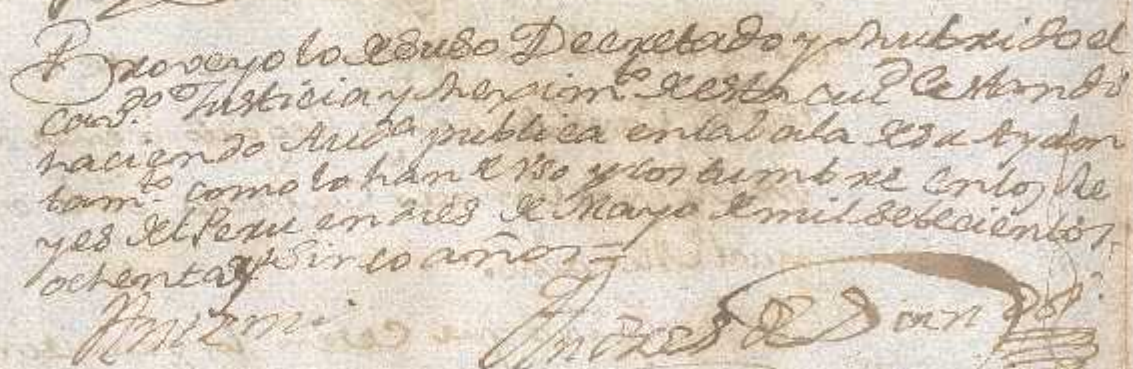 Proveyo lo de suso Decretado y rubricado el
Cavd.º Justicia y Reximto. de esta ciud. estando
haciendo Auda. publica en la sala de su Ayun
tamto. como lo han de vso y costumbre en los Re
yes del Peru en dies de Mayo de mil setecientos
ochenta y sinco años =
Ante mi
Andres de